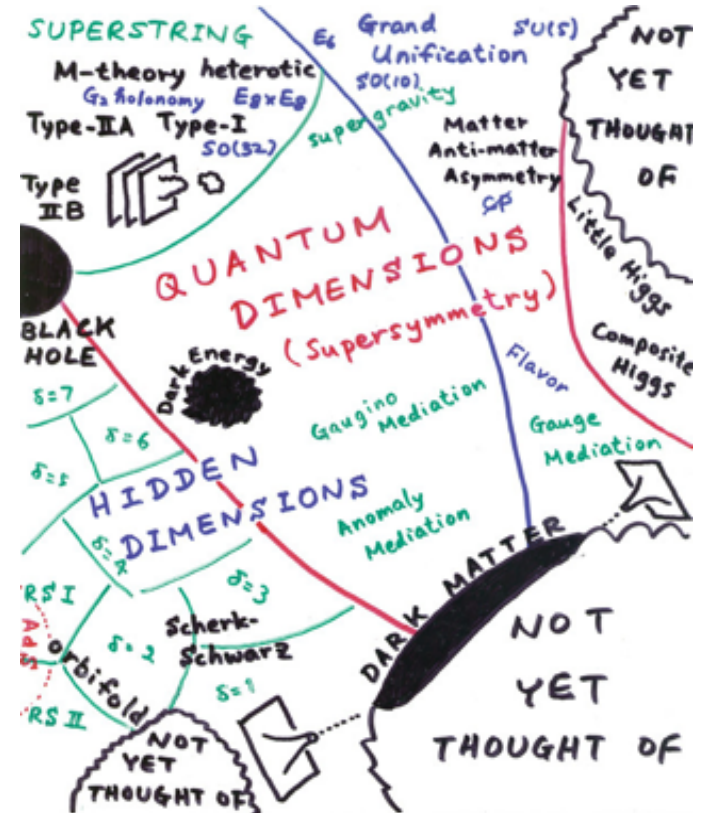 SUPERSTRING
M-theory heterotic
G₂ holonomy E8×E8
Type-IIA Type-I
SO(32)
Type
IIB
E6 Grand
Unification
SU(5)
SO(10)
supergravity
Matter
Anti-matter
Asymmetry
CP
NOT
YET
THOUGHT
OF
Little Higgs
Composite
Higgs
QUANTUM
DIMENSIONS
(Supersymmetry)
BLACK
HOLE
Dark Energy
Flavor
Gaugino
Mediation
Gauge
Mediation
Anomaly
Mediation
δ=7
δ=6
δ=5
HIDDEN
DIMENSIONS
δ=4
δ=3
DARK MATTER
RS I
AdS
orbifold
RS II
δ=2
Scherk-
Schwarz
δ=1
NOT
YET
THOUGHT OF
NOT
YET
THOUGHT OF